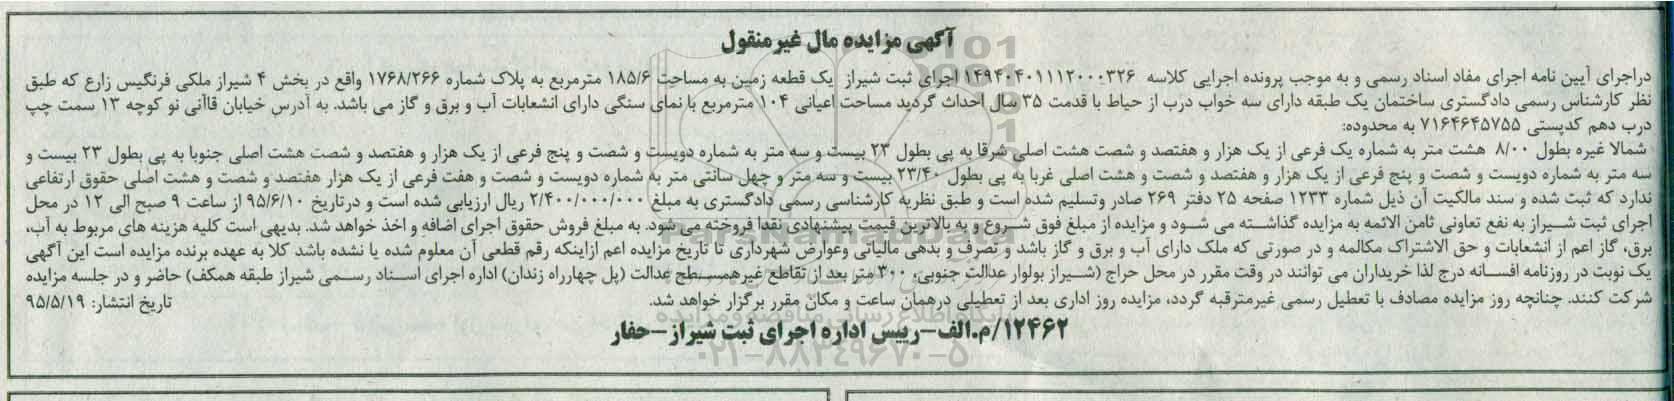 آگهی مزایده مال غیرمنقول
دراجرای آیین نامه اجرای مفاد اسناد رسمی و به موجب پرونده اجرایی کلاسه ۱۴۹۴۰۴۰۱۱۱۲۰۰۰۳۲۶ اجرای ثبت شیراز یک قطعه زمین به مساحت ۱۸۵/۶ مترمربع به پلاک شماره ۱۷۶۸/۲۶۶ واقع در بخش ۴ شیراز ملکی فرنگیس زارع که طبق
نظر کارشناس رسمی دادگستری ساختمان یک طبقه دارای سه خواب درب از حیاط با قدمت ۳۵ سال احداث گردید مساحت اعیانی ۱۰۴ مترمربع با نمای سنگی دارای انشعابات آب و برق و گاز می باشد. به آدرس خیابان قاآنی نو کوچه ۱۳ سمت چپ
درب دهم کدپستی ۷۱۶۴۶۴۵۷۵۵ به محدوده:
شمالا غیره بطول ۸/۰۰ هشت متر به شماره یک فرعی از یک هزار و هفتصد و شصت هشت اصلی شرقا به پی بطول ۲۳ بیست و سه متر به شماره دویست و شصت و پنج فرعی از یک هزار و هفتصد و شصت هشت اصلی جنوبا به پی بطول ۲۳ بیست و
سه متر به شماره دویست و شصت و پنج فرعی از یک هزار و هفتصد و شصت و هشت اصلی غربا به پی بطول ۲۳/۴۰ بیست و سه متر و چهل سانتی متر به شماره دویست و شصت و هفت فرعی از یک هزار هفتصد و شصت و هشت اصلی حقوق ارتفاعی
ندارد که ثبت شده و سند مالکیت آن ذیل شماره ۱۲۳۳ صفحه ۲۵ دفتر ۲۶۹ صادر وتسلیم شده است و طبق نظریه کارشناسی رسمی دادگستری به مبلغ ۲/۴۰۰/۰۰۰/۰۰۰ ریال ارزیابی شده است و درتاریخ ۹۵/۶/۱۰ از ساعت ۹ صبح الی ۱۲ در محل
اجرای ثبت شیراز به نفع تعاونی ثامن الائمه به مزایده گذاشته می شود و مزایده از مبلغ فوق شروع و به بالاترین قیمت پیشنهادی نقدا فروخته می شود. به مبلغ فروش حقوق اجرای اضافه و اخذ خواهد شد. بدیهی است کلیه هزینه های مربوط به آب،
برق، گاز اعم از انشعابات و حق الاشتراک مکالمه و در صورتی که ملک دارای آب و برق و گاز باشد و تصرف و بدهی مالیاتی وعوارض شهرداری تا تاریخ مزایده اعم ازاینکه رقم قطعی آن معلوم شده یا نشده باشد کلا به عهده برنده مزایده است این آگهی
یک نوبت در روزنامه افسانه درج لذا خریداران می توانند در وقت مقرر در محل حراج (شیراز بولوار عدالت جنوبی، ۳۰۰ متر بعد از تقاطع غیرهمسطح عدالت (پل چهارراه زندان) اداره اجرای اسناد رسمی شیراز طبقه همکف) حاضر و در جلسه مزایده
شرکت کنند. چنانچه روز مزایده مصادف با تعطیل رسمی غیرمترقبه گردد، مزایده روز اداری بعد از تعطیلی درهمان ساعت و مکان مقرر برگزار خواهد شد.
تاریخ انتشار: ۹۵/۵/۱۹
۱۲۴۶۲/م.الف-رییس اداره اجرای ثبت شیراز-حفار
پایگاه اطلاع رسانی مناقصه و مزایده
۰۲۱-۸۸۳۴۹۶۷۰-۵